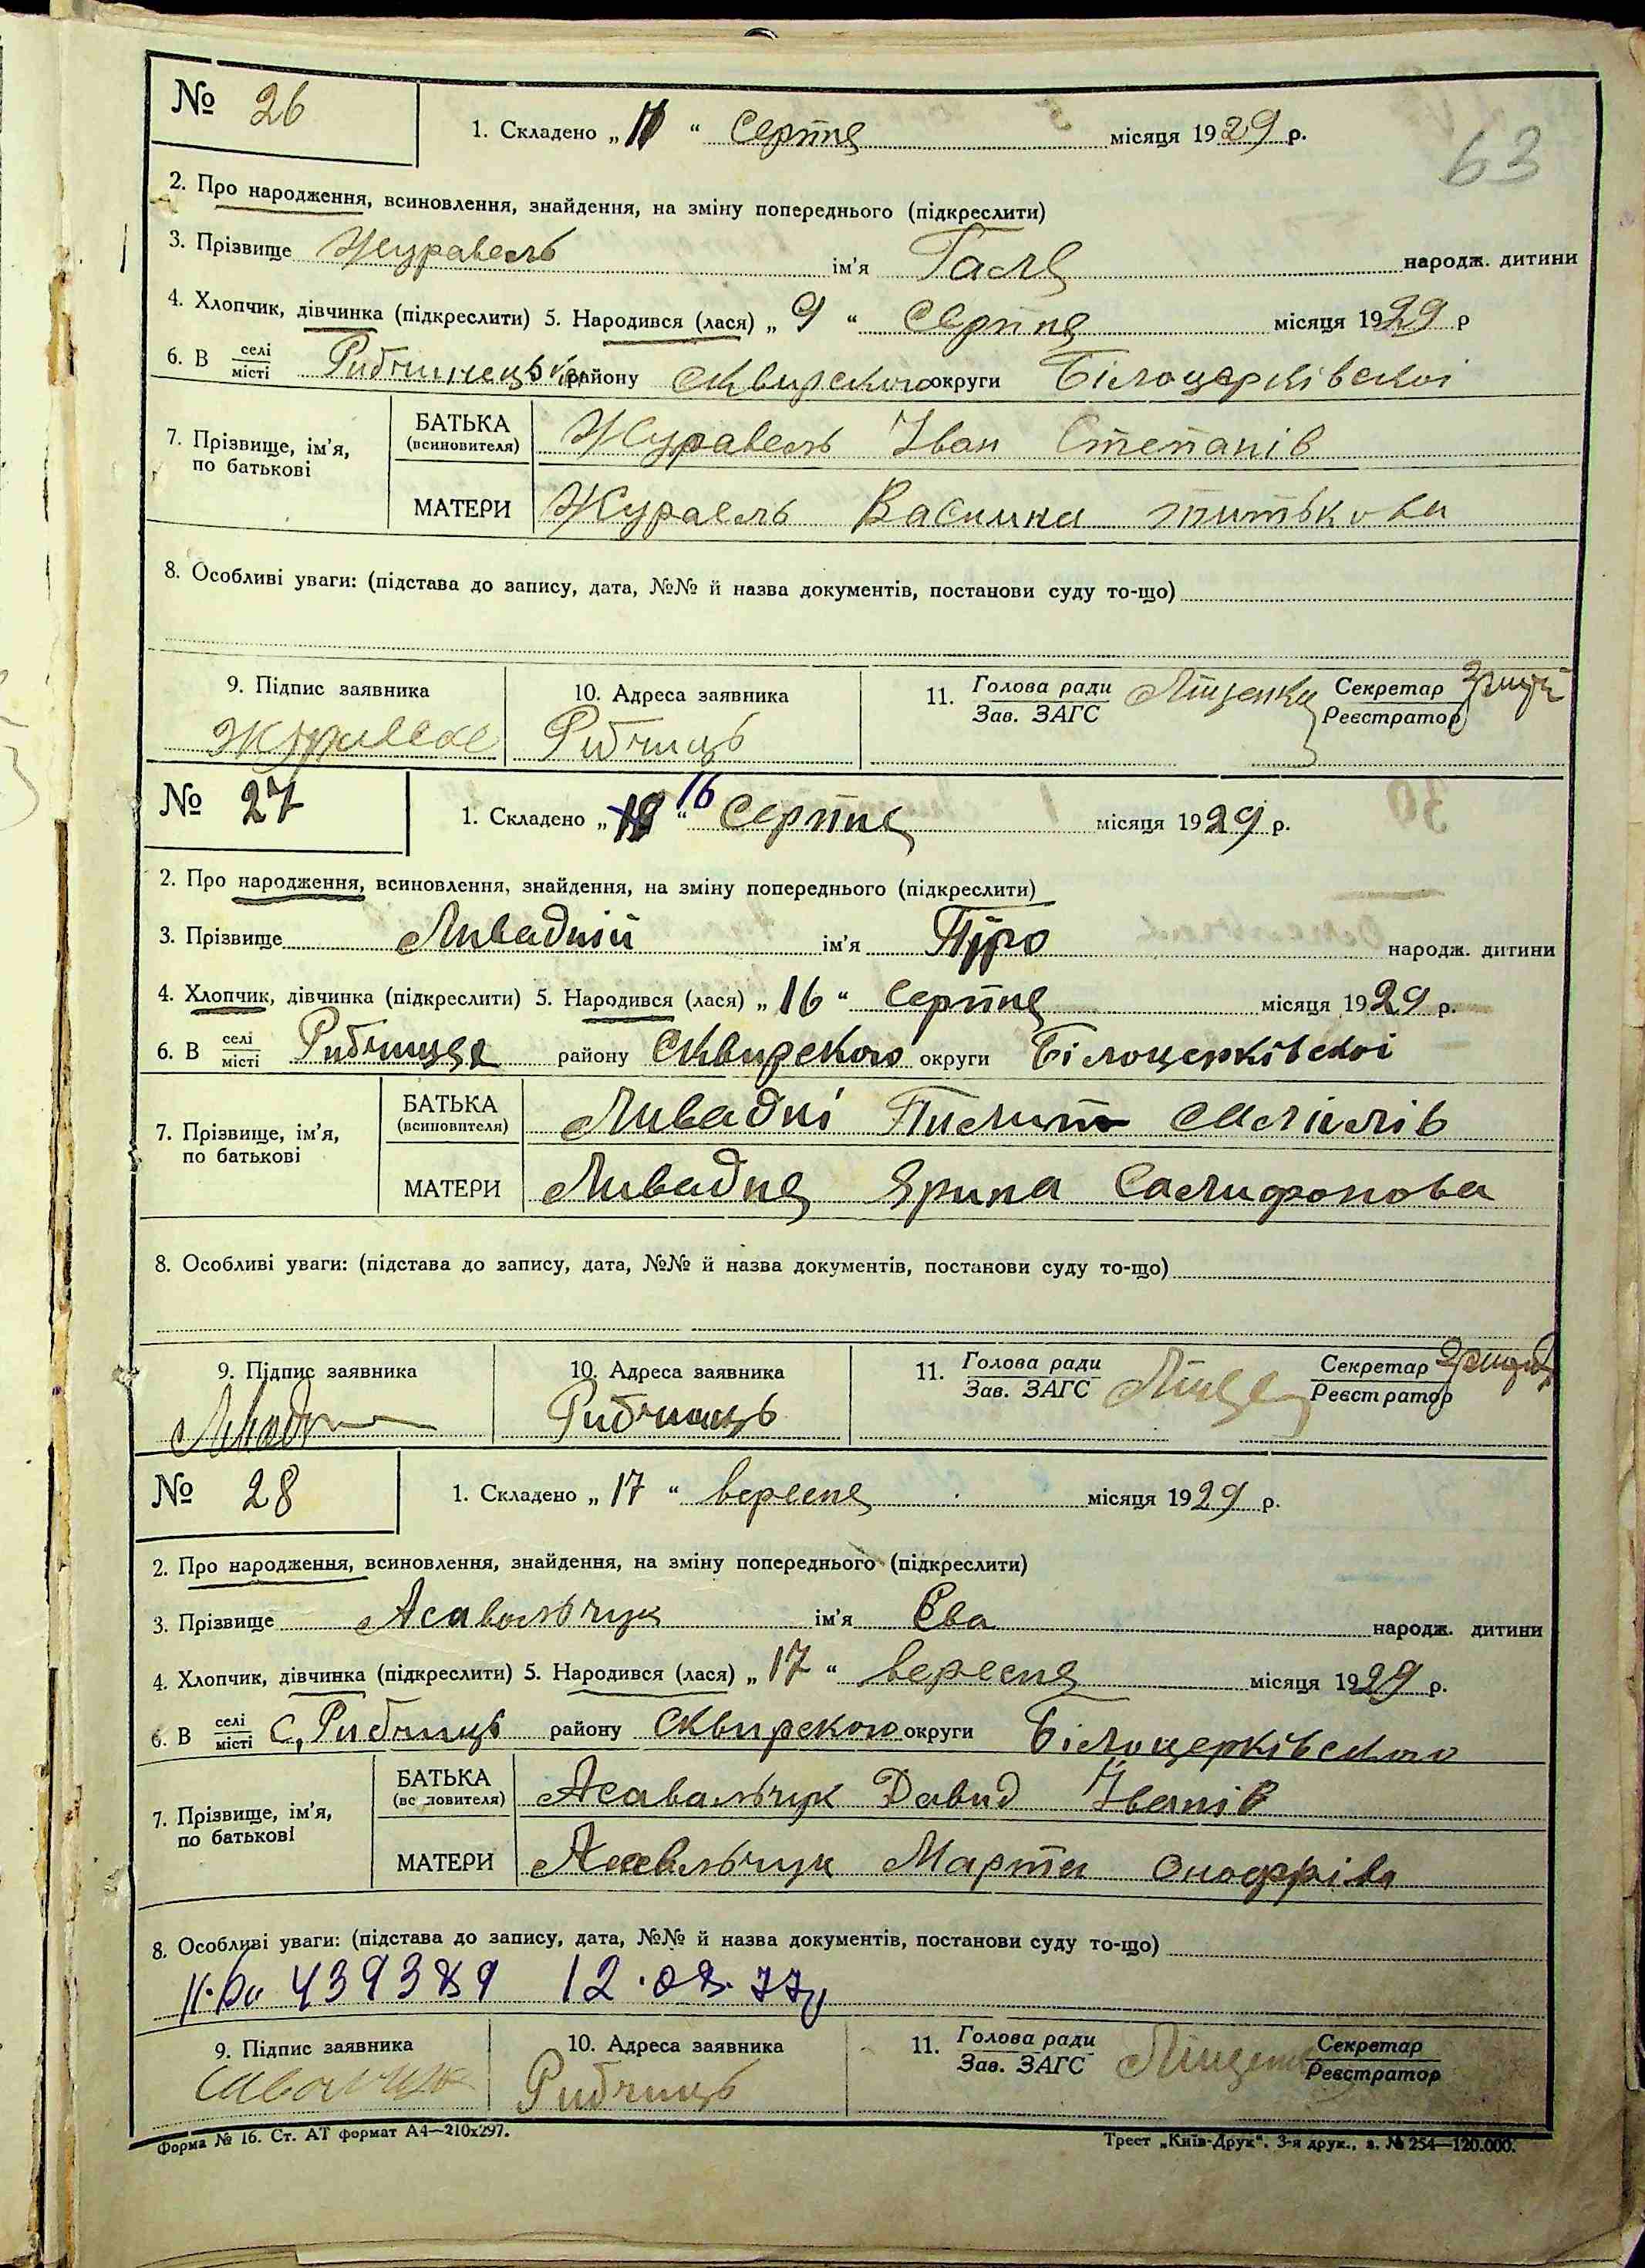 № 26
1. Складено „ “ Серпня місяця 1929 р.
63
2. Про народження, всиновлення, знайдення, на зміну попереднього (підкреслити)
3. Прізвище Журавель ім'я Галя народж. дитини
4. Хлопчик, дівчинка (підкреслити) 5. Народився (лася) „ 9 “ Серпня місяця 1929 р
6. В селі/місті району Сквирского округи Білоцерківскоі
7. Прізвище, ім'я, по батькові
БАТЬКА (всиновителя) Журавель Іван Степанів
МАТЕРИ Журавель
8. Особливі уваги: (підстава до запису, дата, №№ й назва документів, постанови суду то-що)
9. Підпис заявника 10. Адреса заявника 11. Голова ради/Зав. ЗАГС Секретар/Реєстратор
Рибчинць
№ 27
1. Складено „ “ 16 Серпня місяця 1929 р.
2. Про народження, всиновлення, знайдення, на зміну попереднього (підкреслити)
3. Прізвище Ливадній ім'я народж. дитини
4. Хлопчик, дівчинка (підкреслити) 5. Народився (лася) „ 16 “ Серпня місяця 1929 р.
6. В селі/місті району Сквирского округи Білоцерківскоі
7. Прізвище, ім'я, по батькові
БАТЬКА (всиновителя) Ливадні Пилип
МАТЕРИ Ливадня Ярина
8. Особливі уваги: (підстава до запису, дата, №№ й назва документів, постанови суду то-що)
9. Підпис заявника 10. Адреса заявника 11. Голова ради/Зав. ЗАГС Секретар/Реєстратор
Рибчинць
№ 28
1. Складено „ 17 “ вересня місяця 1929 р.
2. Про народження, всиновлення, знайдення, на зміну попереднього (підкреслити)
3. Прізвище Асавольчук ім'я Єва народж. дитини
4. Хлопчик, дівчинка (підкреслити) 5. Народився (лася) „ 17 “ вересня місяця 1929 р.
6. В селі/місті С, Рибчинць району Сквирского округи
7. Прізвище, ім'я, по батькові
БАТЬКА Асавальчук Давид Іванів
МАТЕРИ Марта
8. Особливі уваги: (підстава до запису, дата, №№ й назва документів, постанови суду то-що)
9. Підпис заявника 10. Адреса заявника 11. Голова ради/Зав. ЗАГС Секретар/Реєстратор
Рибчинць
Форма № 16. Ст. АТ формат А4—210х297. Трест „Київ-Друк“. 3-я друк., з. № 254—120.000.